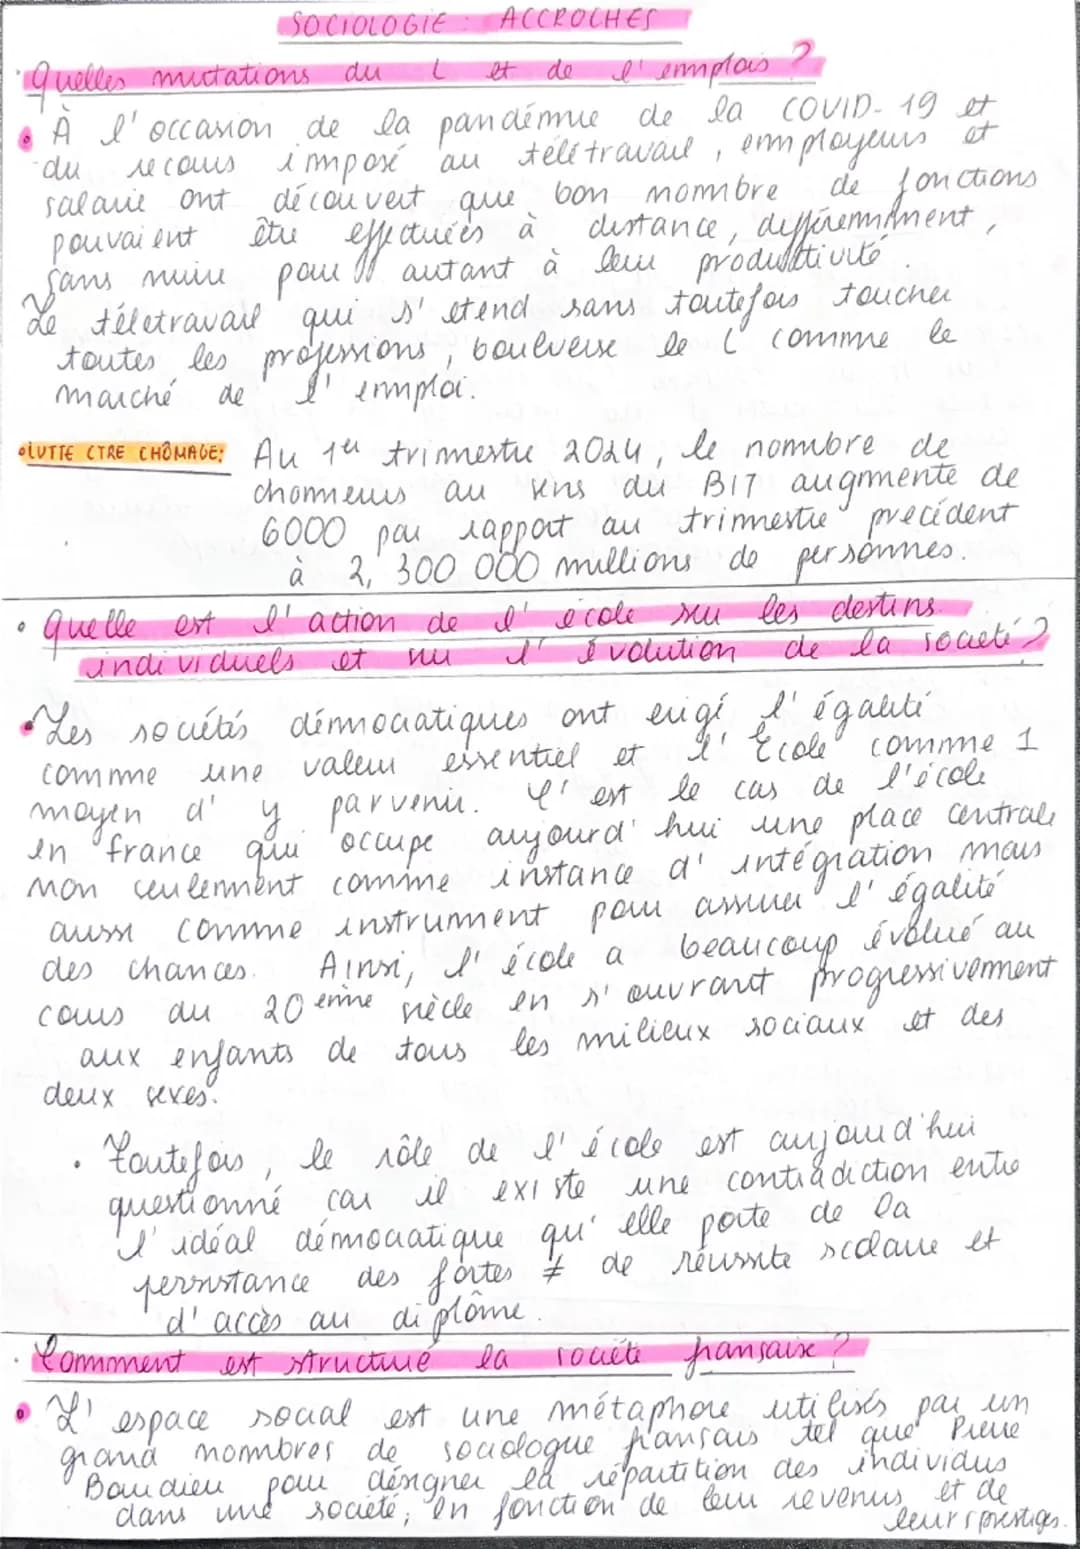 SOCIOLOGIE : ACCROCHES
Quelles mutations du L et de l'emplois ?
• À l'occasion de la pandémie de la COVID-19 et
du recours imposé au télétravail, employeurs et
salarié ont découvert que bon nombre de fonctions
pouvaient être effectuées à distance, différemment,
sans nuire pour autant à leur productivité.
Le télétravail qui s'étend sans toutefois toucher
toutes les professions, bouleverse le L comme le
marché de l'emploi.
• LUTTE CTRE CHÔMAGE: Au 1er trimestre 2024, le nombre de
chomeurs au sens du BIT augmente de
6000 par rapport au trimestre precédent
à 2, 300 000 millions de personnes.
• Quelle est l'action de l'école sur les destins
individuels et sur l'évolution de la société ?
• Les sociétés démocratiques ont erigé l'égalité
comme une valeur essentiel et l'École comme 1
moyen d'y parvenir. C'est le cas de l'école
en france qui occupe aujourd'hui une place centrale
non seulement comme instance d'intégration mais
aussi comme instrument pour assurer l'égalité
des chances. Ainsi, l'école a beaucoup évolué au
cours du 20 ème siècle en s'ouvrant progressivement
aux enfants de tous les milieux sociaux et des
deux sexes.
• Toutefois, le rôle de l'école est aujourd'hui
questionné car il existe une contradiction entre
l'idéal démocratique qu'elle porte de la
persistance des fortes ≠ de réussite scolaire et
d'accès au diplôme.
• Comment est structuré la société française ?
• L'espace social est une métaphore utilisés par un
grand nombres de sociologue français tel que Pierre
Bourdieu pour désigner la répartition des individus
dans une société, en fonction de leur revenus et de
leurs prestiges.